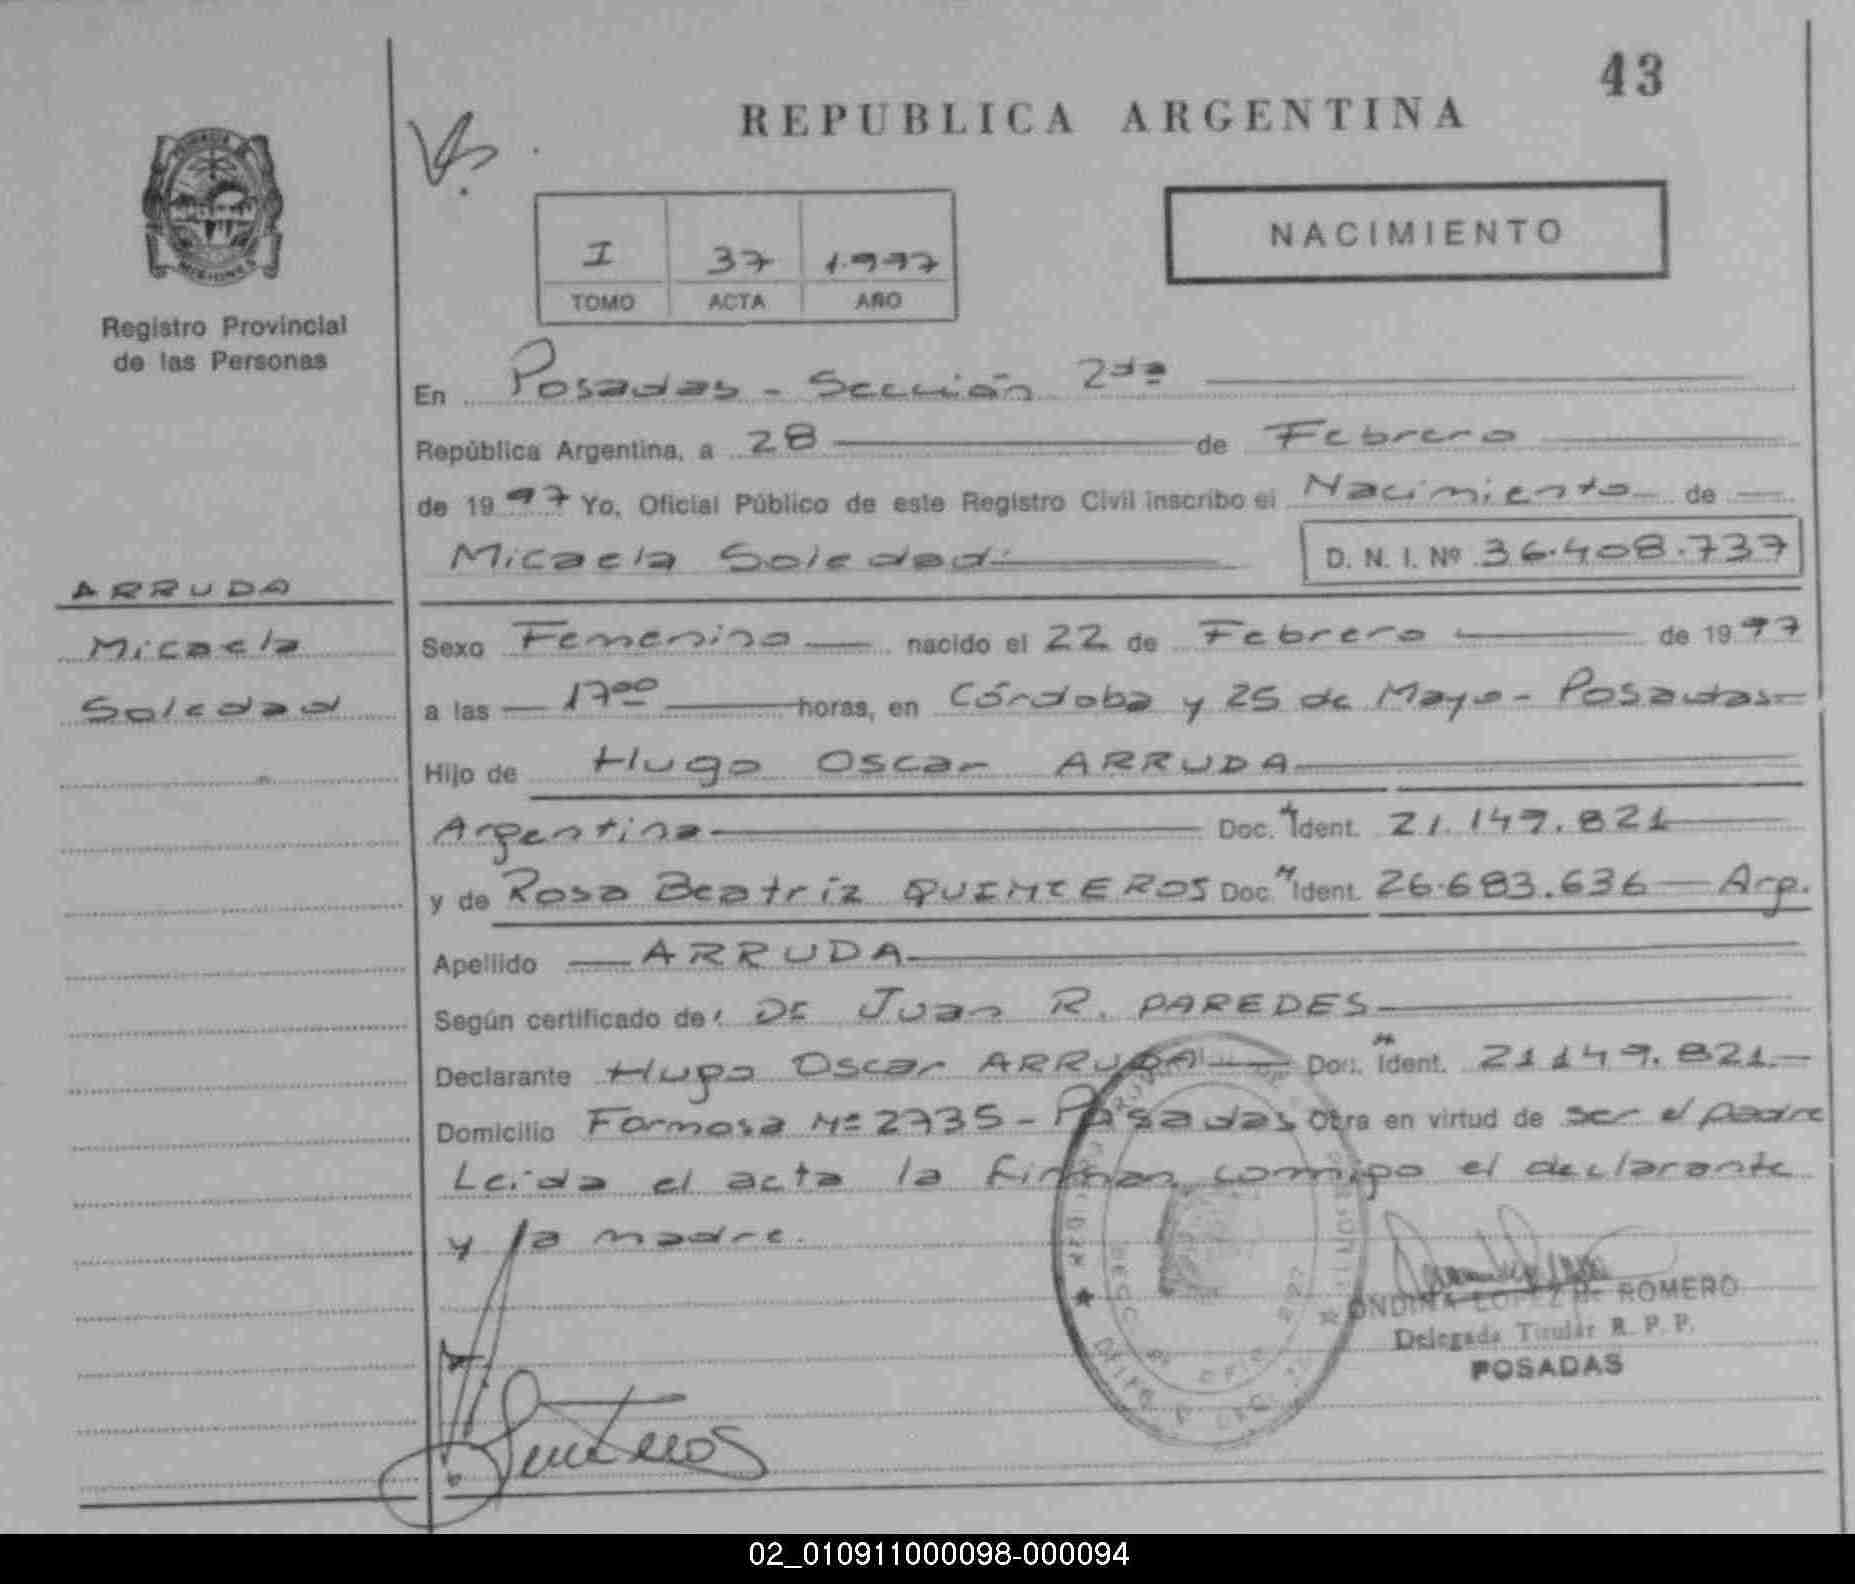 43
REPUBLICA ARGENTINA
NACIMIENTO
MISIONES
Registro Provincial
de las Personas
I 37 1.997
TOMO ACTA AÑO
En Posadas - Sección 2da
República Argentina, a 28 de Febrero
de 1997 Yo, Oficial Público de este Registro Civil inscribo el Nacimiento de
Micaela Soledad D. N. I. Nº 36.408.737
ARRUDA
Micaela
Soledad
Sexo Femenino nacido el 22 de Febrero de 1997
a las 17 00 horas, en Córdoba y 25 de Mayo - Posadas
Hijo de Hugo Oscar ARRUDA
Argentina Doc. Ident. 21.149.821
y de Rosa Beatriz QUINTEROS Doc. Ident. 26.683.636 - Arg.
Apellido ARRUDA
Según certificado de: DE Juan R. PAREDES
Declarante Hugo Oscar ARRUDA Doc. Ident. 21149.821.-
Domicilio Formosa Nº 2735 - Posadas Obra en virtud de ser el padre
Leida el acta la firman conmigo el declarante
y la madre.
ONDINA LOPEZ de ROMERO
Delegada Titular R. P. P.
POSADAS
Quinteros
02_010911000098-000094